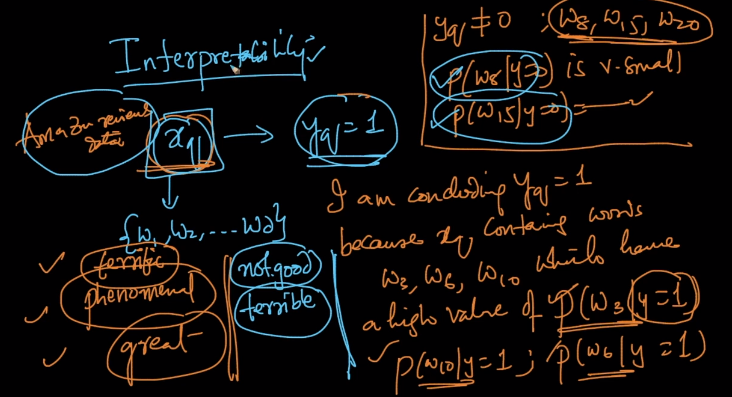 Interpretability
Amazon reviews
data
xq → yq = 1
{w1, w2, .... wd}
terrific
phenomenal
great
not good
terrible
yq ≠ 0 ; w8, w15, w20
p(w8|y=0) is v.small
p(w15|y=0) =
I am concluding yq = 1
because xq containg words
w3, w6, w10 which have
a high value of p(w3|y=1)
p(w10|y=1 ; p(w6|y=1)